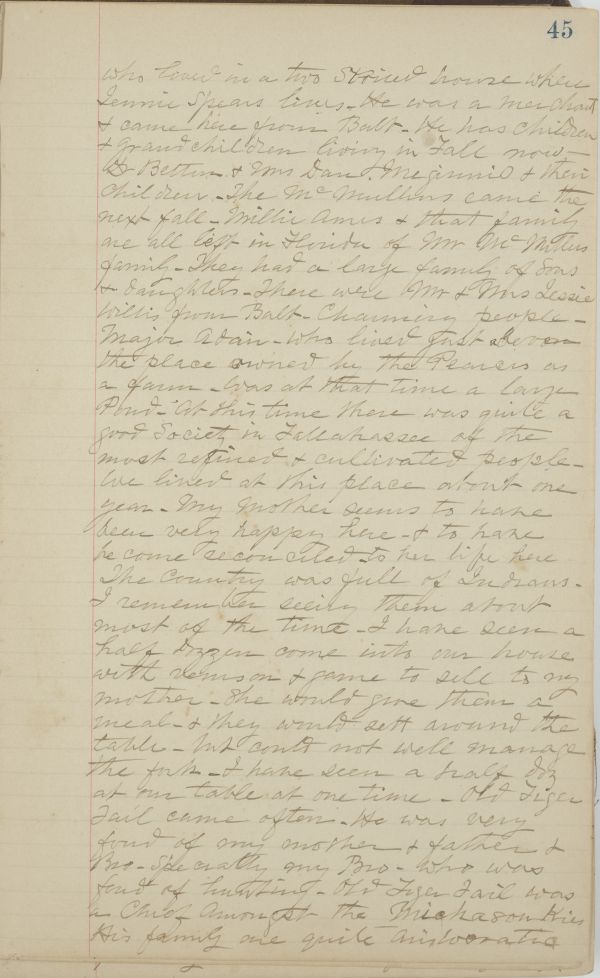 45
who lived in a two Storied house where
Jennie Spears lives - He was a merchant
& came here from Balt - He has children
& grandchildren living in Tall now -
Dr Betton & Mrs Dan & their
children - The McMullins came the
next fall - Willie Ames & that family
are all left in Florida of Mr
family - They had a large family of Sons
& daughters - There were Mr & Mrs Jessie
Willis from Balt - Charming people -
Major Adair - who lived just
the place owned by the as
a farm - was at that time a large
Pond - At this time there was quite a
good Society in Tallahassee of the
most refined & cultivated people -
We lived at this place about one
year - My mother seems to have
been very happy here - & to have
become reconciled to her life here
The Country was full of Indians -
I remember seeing them about
most of the time - I have seen a
half dozzen come into our house
with venison & game to sell to my
mother - She would give them a
meal - & they would sett around the
table - but could not well manage
the fork - I have seen a half doz
at our table at one time - Old Tiger
Tail came often - He was very
fond of my mother & father &
Bro - Specially my Bro - who was
fond of hunting - Old Tiger Tail was
a Chief Amongst the
His family are quite aristocratic